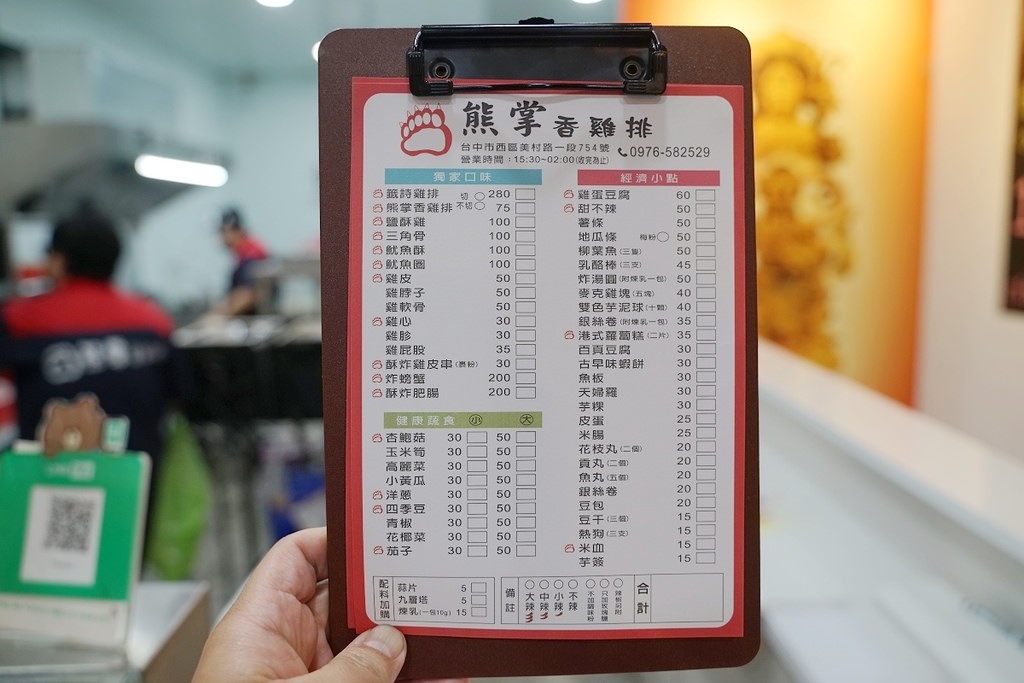 熊掌香雞排
台中市西區美村路一段754號 0976-582529
營業時間：15:30~02:00(收完為止)
獨家口味
籤詩雞排 切 280
熊掌香雞排 不切 75
鹽酥雞 100
三角骨 100
魷魚酥 100
魷魚圈 100
雞皮 50
雞脖子 50
雞軟骨 50
雞心 30
雞胗 30
雞屁股 35
酥炸雞皮串(裹粉) 30
炸螃蟹 200
酥炸肥腸 200
健康蔬食 小 大
杏鮑菇 30 50
玉米筍 30 50
高麗菜 30 50
小黃瓜 30 50
洋蔥 30 50
四季豆 30 50
青椒 30 50
花椰菜 30 50
茄子 30 50
經濟小點
雞蛋豆腐 60
甜不辣 50
薯條 50
地瓜條 梅粉 50
柳葉魚(三隻) 50
乳酪棒(三支) 45
炸湯圓(附煉乳一包) 50
麥克雞塊(五塊) 40
雙色芋泥球(十顆) 40
銀絲卷(附煉乳一包) 35
港式蘿蔔糕(二片) 35
百頁豆腐 35
古早味蝦餅 30
魚板 30
天婦羅 30
芋粿 30
皮蛋 25
米腸 25
花枝丸(二個) 20
貢丸(二個) 20
魚丸(五個) 20
銀絲卷 20
豆包 20
豆干(三個) 15
熱狗(三支) 15
米血 15
芋簽 15
配料加購
蒜片 5
九層塔 5
煉乳(一包10g) 15
備註
大辣
中辣
小辣
不辣
不加胡椒粉
只加玫瑰鹽
辣椒另附
合計